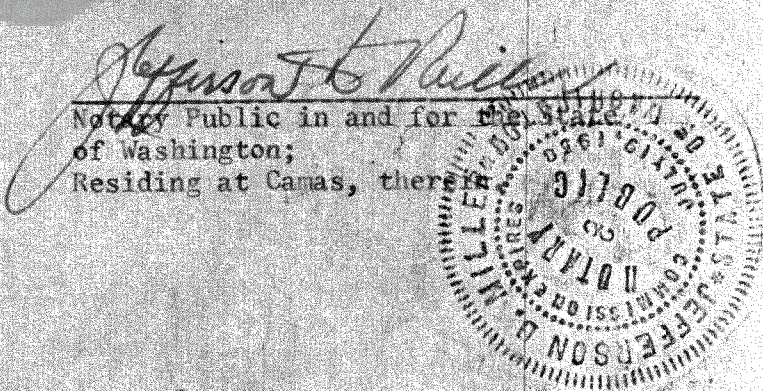 Jefferson D. Miller
Notary Public in and for the State
of Washington;
Residing at Camas, therein
JEFFERSON D. MILLER
STATE OF WASHINGTON
COMMISSION EXPIRES
JULY 19, 1980
NOTARY
PUBLIC